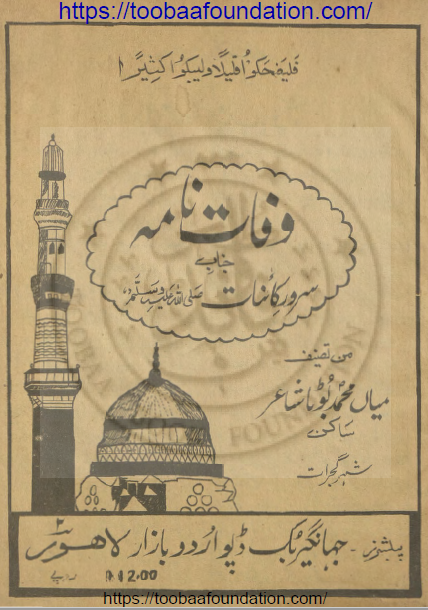 https://toobaafoundation.com/
فلیضحکوا قلیلًا ولیبکوا کثیرًا
وفات نامہ
جناب
سرور کائنات صلی اللہ علیہ وسلم
من تصنیف
میاں محمد بوٹا شاعر
ساکن
شہر گجرات
پبلشرز - جہانگیر بک ڈپو اردو بازار لاہور ۲
12.00 روپے
https://toobaafoundation.com/